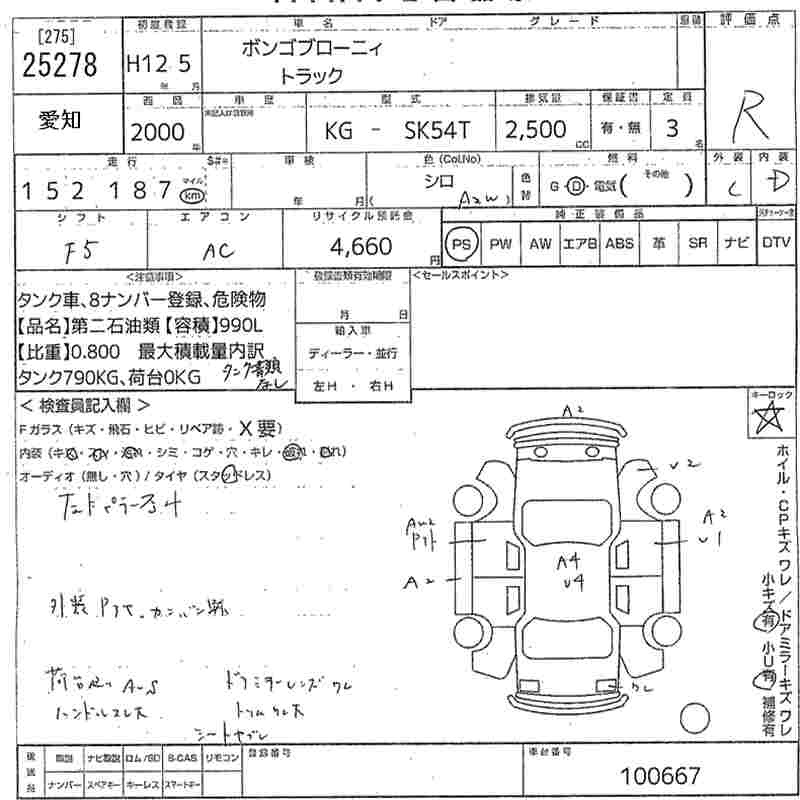 [275]
25278
初度登録
H12 5
年 月
車名 ドア グレード
ボンゴブローニィ
トラック
評価点
R
愛知
2000
年
車歴
型式
KG - SK54T
排気量
2,500
CC
保証書
有・無
定員
3
名
走行
152 187
マイル
km
車検
年 月
色(Col.No)
シロ
A2W
色替
燃料
G・D・電気( その他 )
外装
C
内装
D
シフト
F5
エアコン
AC
リサイクル預託金
4,660
円
純正装備品
PS PW AW エアB ABS 革 SR ナビ DTV
<注意事項>
タンク車、8ナンバー登録、危険物
【品名】第二石油類【容積】990L
【比重】0.800 最大積載量内訳
タンク790KG、荷台0KG タンク書類なし
登録書類有効期限
月 日
輸入車
ディーラー・並行
左H・右H
<セールスポイント>
<検査員記入欄>
Fガラス(キズ・飛石・ヒビ・リペア跡・X要)
オーディオ(無し・穴)/タイヤ(スタッドレス)
キーロック
ホイル・CPキズワレ/ドアミラーキズワレ
小キズ有 小U有 補修有
A2
U2
A2
U1
A2
A4
U4
ワレ
外装 Pタヘ、カンバン跡
ドアミラーレンズワレ
ハンドルスレ大
シートヤブレ
後送品
取説 ナビ取説 ロム/SD B-CAS リモコン
ナンバー スペアキー キーレス スマートキー
登録番号
車台番号
100667